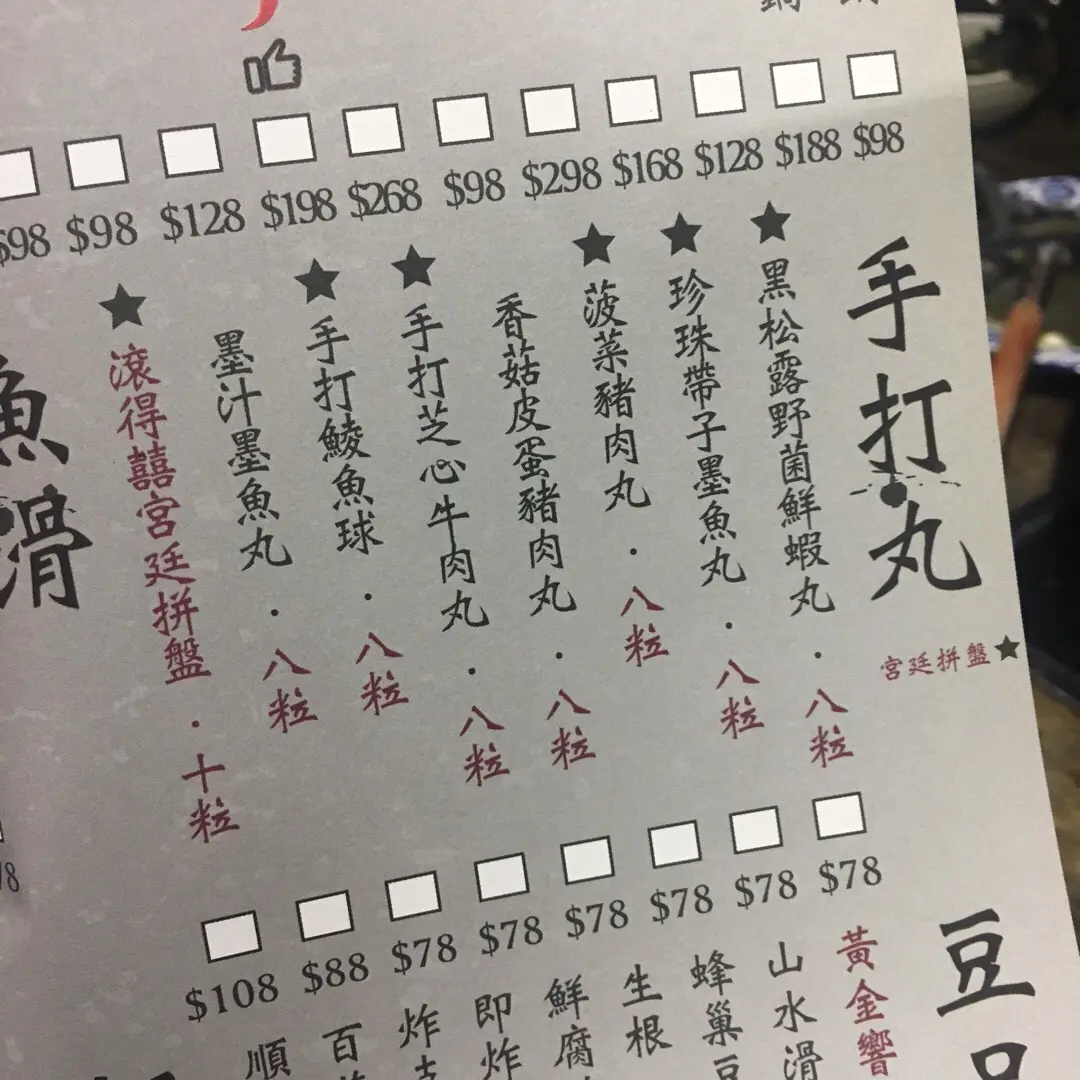 $98 $98 $128 $198 $268 $98 $298 $168 $128 $188 $98
手打丸
宮廷拼盤★
★黑松露野菌鮮蝦丸・八粒
★珍珠帶子墨魚丸・八粒
★菠菜豬肉丸・八粒
香菇皮蛋豬肉丸・八粒
★手打芝心牛肉丸・八粒
★手打鯪魚球・八粒
墨汁墨魚丸・八粒
★滾得囍宮廷拼盤・十粒
魚滑
$108 $88 $78 $78 $78 $78 $78 $78
豆
黃金響
山水滑
蜂巢豆
生根
鮮腐
即炸
炸
百
順